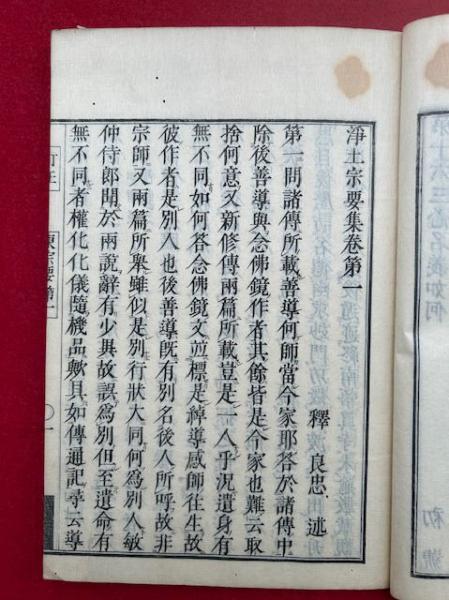 淨土宗要集卷第一
釋 良忠 述
第一問諸傳所載善導何師當今家耶答於諸傳中
除後善導與念佛鏡作者其餘皆是今家也難云取
捨何意又新修傳兩篇所載豈是一人乎況遺身有
無不同如何答念佛鏡文並標是綽導感師往生故
彼作者是別人也後善導旣有別名後人所呼故非
宗師又兩篇所舉雖似是別行狀大同何爲別人敏
仲侍郎聞於兩說辭有少異故誤爲別但至遺命有
無不同者權化化儀隨機品歟具如傳通記尋云導
東宗要第一
〇一
初